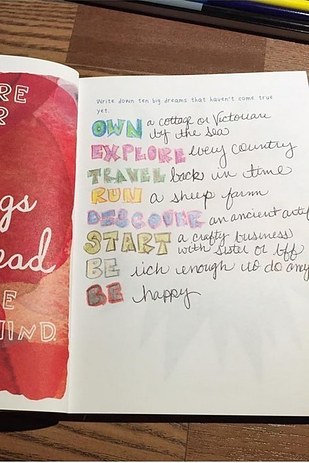 RE
R
gs
ead
E
HIND.
Write down ten big dreams that haven't come true
yet.
OWN a cottage or Victorian
by the sea
EXPLORE every country
TRAVEL back in time
RUN a sheep farm
DISCOVER an ancient artif
START a crafty business
with sister or bff
BE rich enough to do any
BE happy